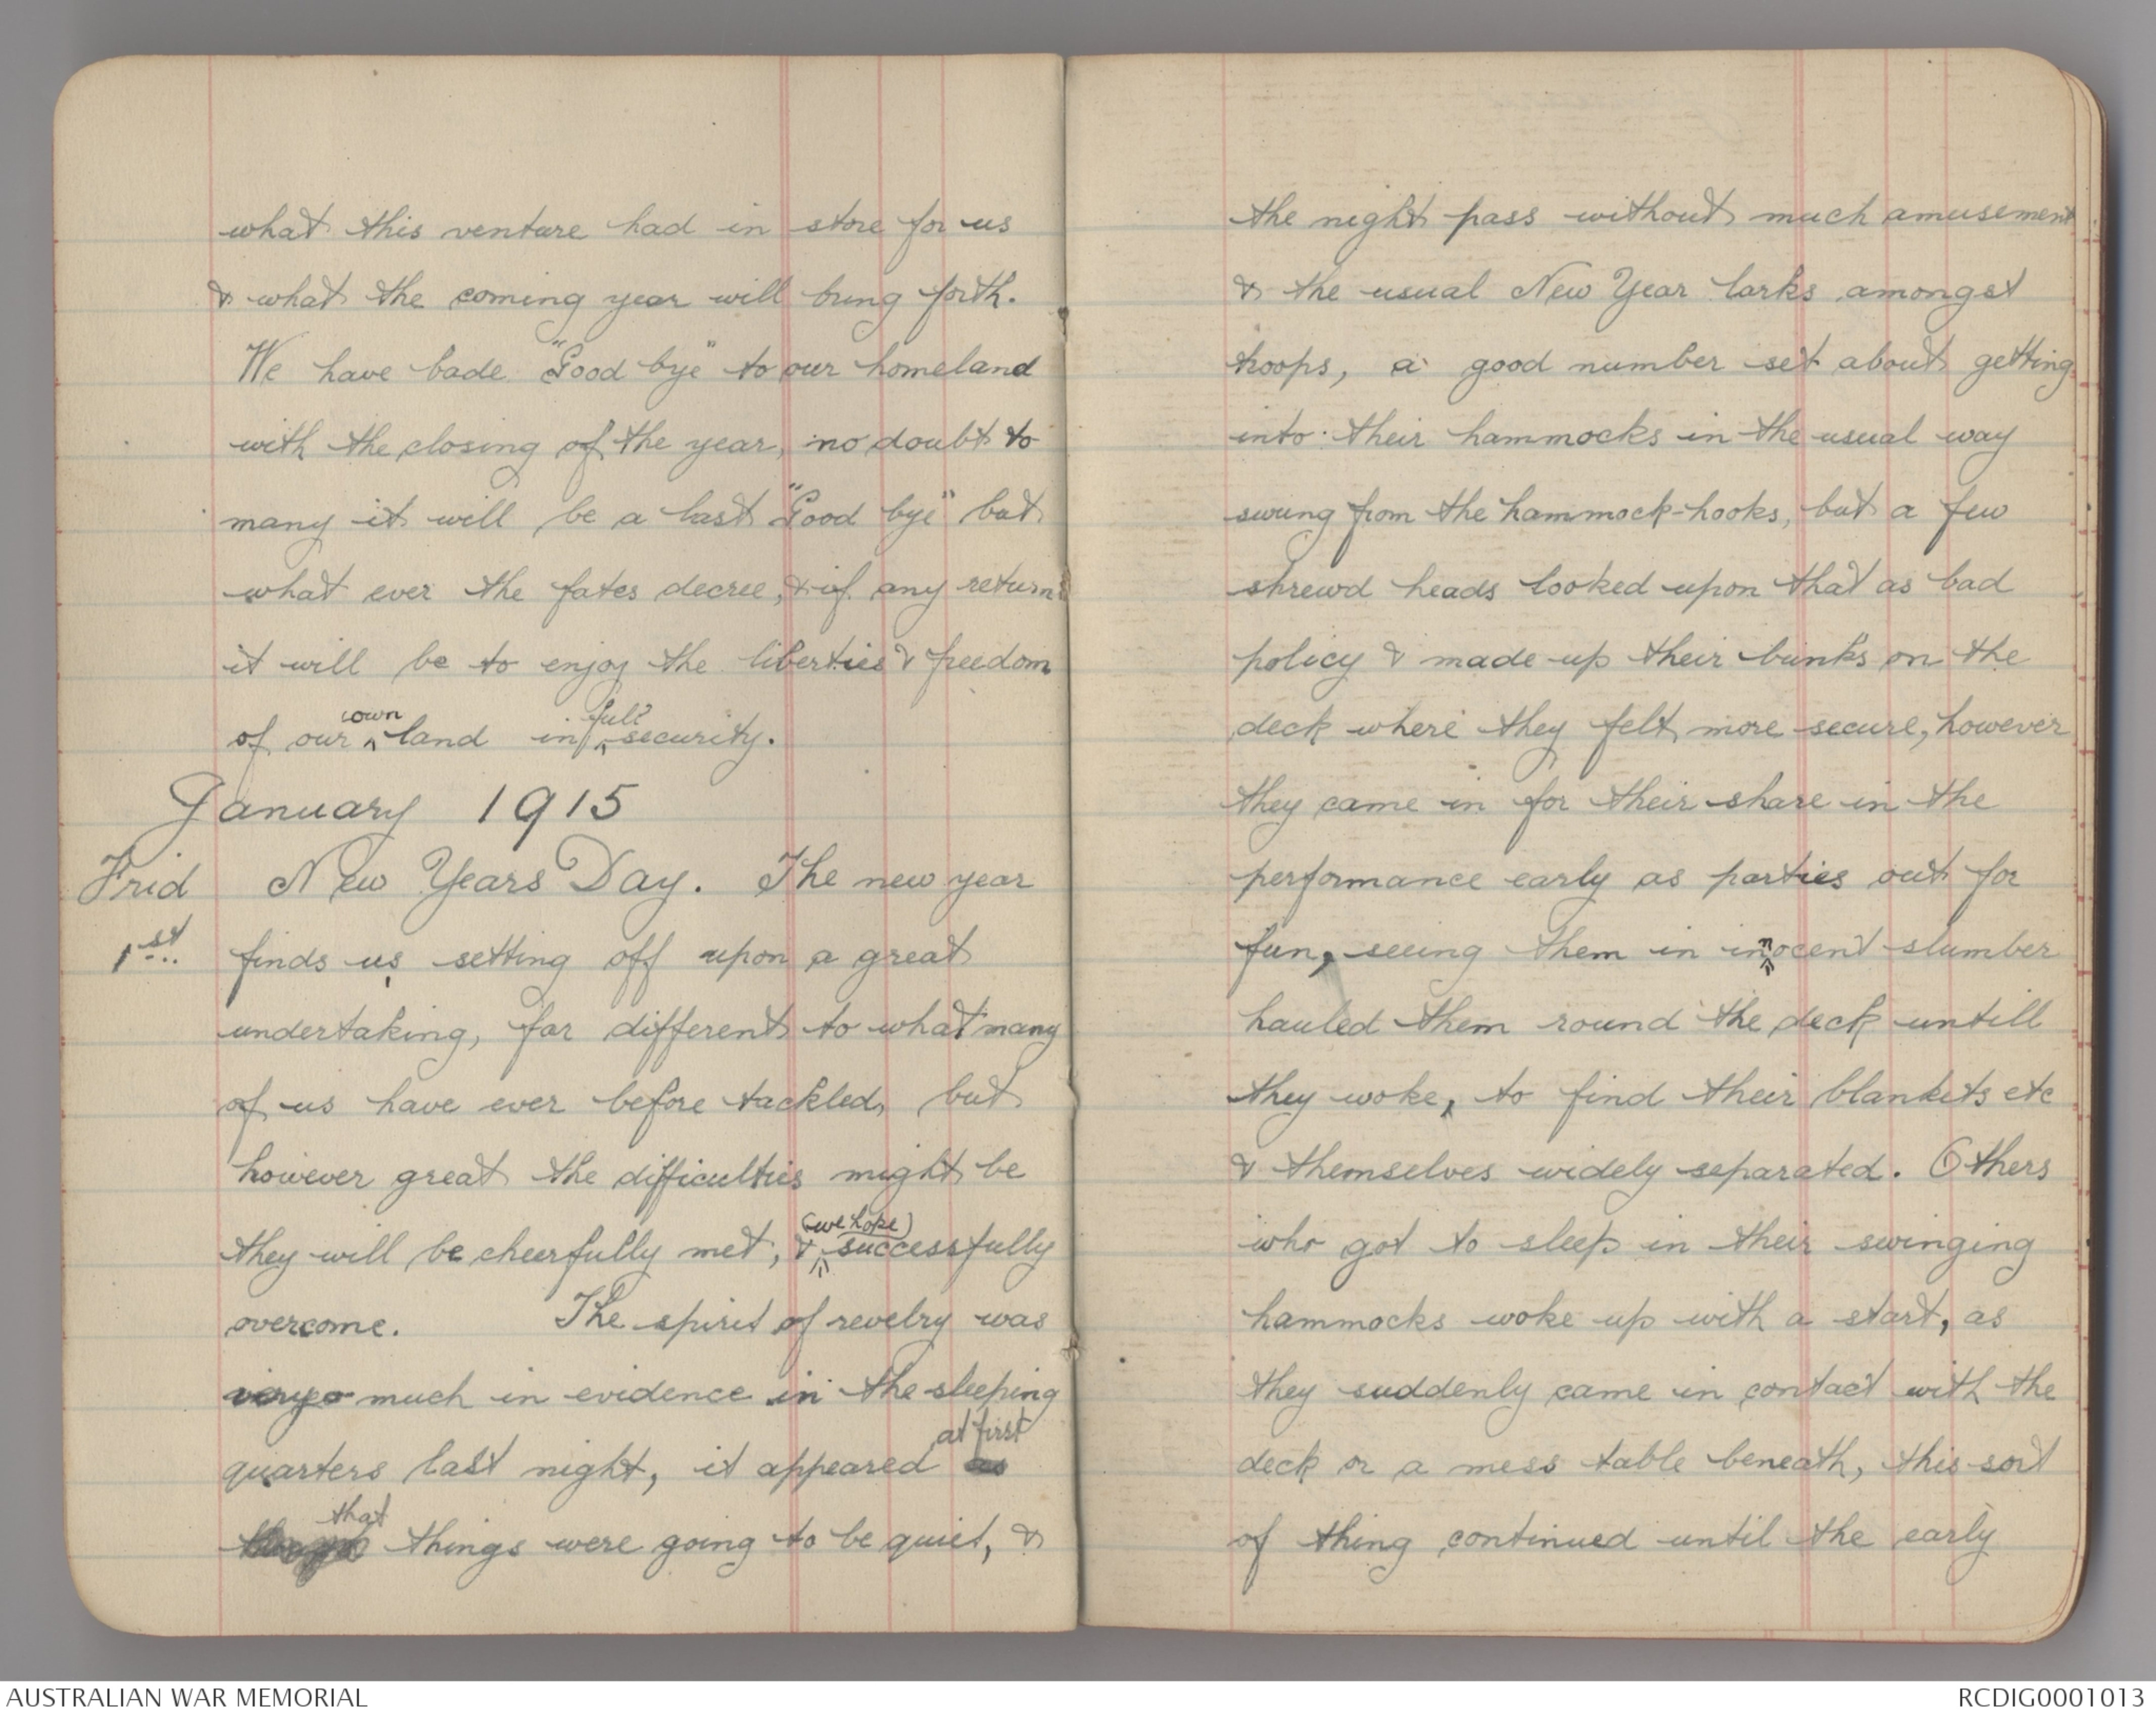 what this venture had in store for us
& what the coming year will bring forth.
We have bade "Good bye" to our homeland
with the closing of the year, no doubt to
many it will be a last "Good bye" but
what ever the fates decree, & if any return
it will be to enjoy the liberties & freedom
of our own land in full security.
January 1915
Frid New Years Day. The new year
1st finds us setting off upon a great
undertaking, far different to what many
of us have ever before tackled, but
however great the difficulties might be
they will be cheerfully met, & (we hope) successfully
overcome. The spirit of revelry was
very much in evidence in the sleeping
quarters last night, it appeared at first as
that things were going to be quiet, &
the night pass without much amusement
& the usual New Year larks amongst
troops, a good number set about getting
into their hammocks in the usual way
swung from the hammock-hooks, but a few
shrewd heads looked upon that as bad
policy & made up their bunks on the
deck where they felt more secure, however
they came in for their share in the
performance early as parties out for
fun, seeing them in innocent slumber
hauled them round the deck untill
they woke, to find their blankets etc
& themselves widely separated. Others
who got to sleep in their swinging
hammocks woke up with a start, as
they suddenly came in contact with the
deck or a mess table beneath, this sort
of thing continued until the early
AUSTRALIAN WAR MEMORIAL
RCDIG0001013